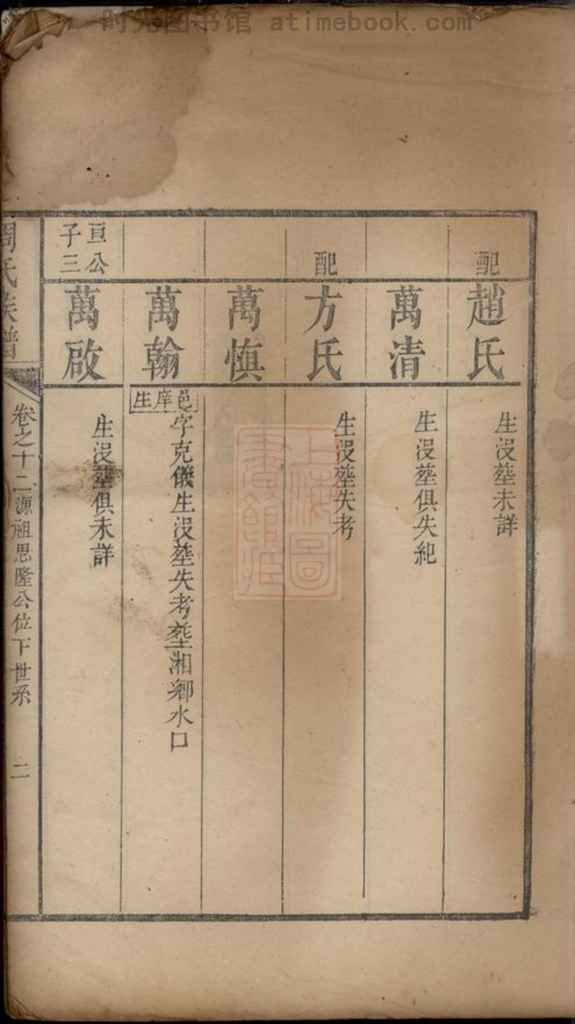 时光图书馆 atimebook.com
配
趙氏
生沒塟未詳
萬清
生沒塟俱失紀
配
方氏
生沒塟失考
萬慎
萬翰
邑庠生
字克儀生沒塟失考塟湘鄉水口
亘公
子三
萬啟
生沒塟俱未詳
周氏族譜
卷之十二源祖思隆公位下世系
二
上海圖
書館藏